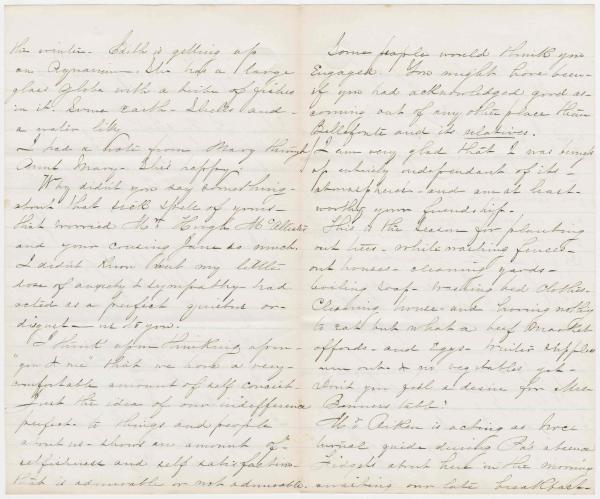 the winter - Edith is getting up
an Aquarium. She has a large
glass globe with a tribe of fishes
in it. Some earth - Shells and -
a water lily
I had a note from Mary through
Aunt Mary - She's happy.
Why didn't you say something -
about that sick spell of yours -
that worried Mr Hugh McAllister
and your cousin Jane so much.
I didn't know but my little
dose of anxiety & sympathy - had
acted as a perfect quietus or -
disquiet - us to you.
I think upon thinking upon -
"you & me" that we have a very -
comfortable amount of self conceit -
Just the idea of our indifference
perfect to things and people
about us - shows an amount of -
selfishness and self satisfaction -
that is admirable or not admirable.
Some people would think you
Engaged. You might have been -
if you had acknowledged good as -
coming out of any other place than
Bellefonte and its relatives.
I am very glad that I was
entirely independent of its -
atmosphere - and am at least -
worthy your friendship.
This is the season for planting
out trees - white washing fences -
out houses - cleaning yards -
boiling soap - washing bed clothes -
Cleaning house - and having nothing
to eat but what a beef market
affords - and Eggs - winter supplies
run out - & no vegetables yet -
Don't you feel a desire for Mrs
table?
Mr is acting as
guide during Pa's absence
Fidgets about here in the morning
awaiting our late breakfast -